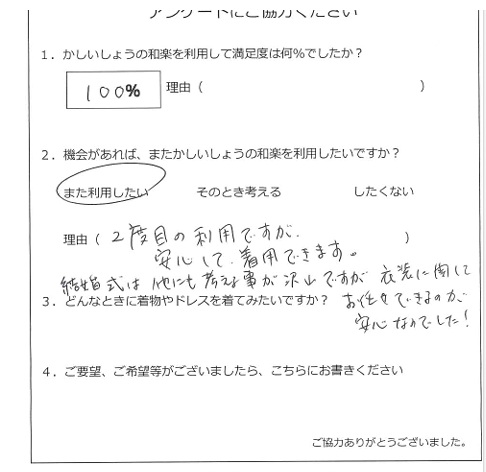 アンケートにご協力ください
1．かしいしょうの和楽を利用して満足度は何%でしたか？
100% 理由（ ）
2．機会があれば、またかしいしょうの和楽を利用したいですか？
また利用したい そのとき考える したくない
理由（ 2度目の利用ですが、 ）
安心して、着用できます。
結婚式は他にも考える事が沢山ですが 衣装に関して
お任せできるのが、
安心なのでした！
3．どんなときに着物やドレスを着てみたいですか？
4．ご要望、ご希望等がございましたら、こちらにお書きください
ご協力ありがとうございました。